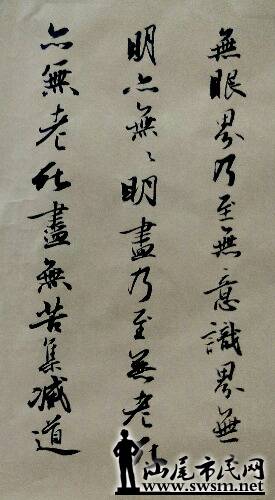 無眼界乃至無意識界無
明亦無〻明盡乃至無老死
亦無老死盡無苦集滅道
汕尾市民网
www.swsm.net